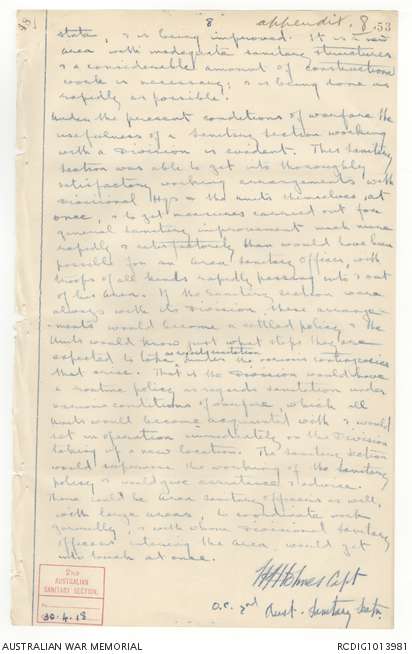 8
appendix 8 53
state, & is being improved. It is a vast
area with inadequate sanitary structures
& a considerable amount of construction
work is necessary; & is being done as
rapidly as possible.
Under the present conditions of warfare the
usefulness of a sanitary section working
with a Division is evident. This sanitary
section was able to get into thoroughly
satisfactory working arrangements with
Divisional Hqrs & the units themselves, at
once, & to get measures carried out for
general sanitary improvement much more
rapidly & satisfactorily than would have been
possible for an area sanitary officer, with
troops of all kinds rapidly passing into & out
of his area. If the sanitary section were
always with its Division these arrange-
ments would become a settled policy & the
units would know just what steps they are
expected to take as regards sanitation under the various contingencies
that arise. That is the Division would have
a routine policy as regards sanitation under
various conditions of warfare, which all
units would become acquainted with & would
set in operation immediately on the Division
taking up a new location. The sanitary section
would supervise the working of the sanitary
policy & would give assistance & advice.
There could be area sanitary officers as well,
with large areas, to coordinate work
generally, & with whom Divisional sanitary
officers entering the area would get
into touch at once.
Capt
O.C. 2nd Aust. Sanitary Sectn.
2ND
AUSTRALIAN
SANITARY SECTION.
30.4.18
AUSTRALIAN WAR MEMORIAL
RCDIG1013981